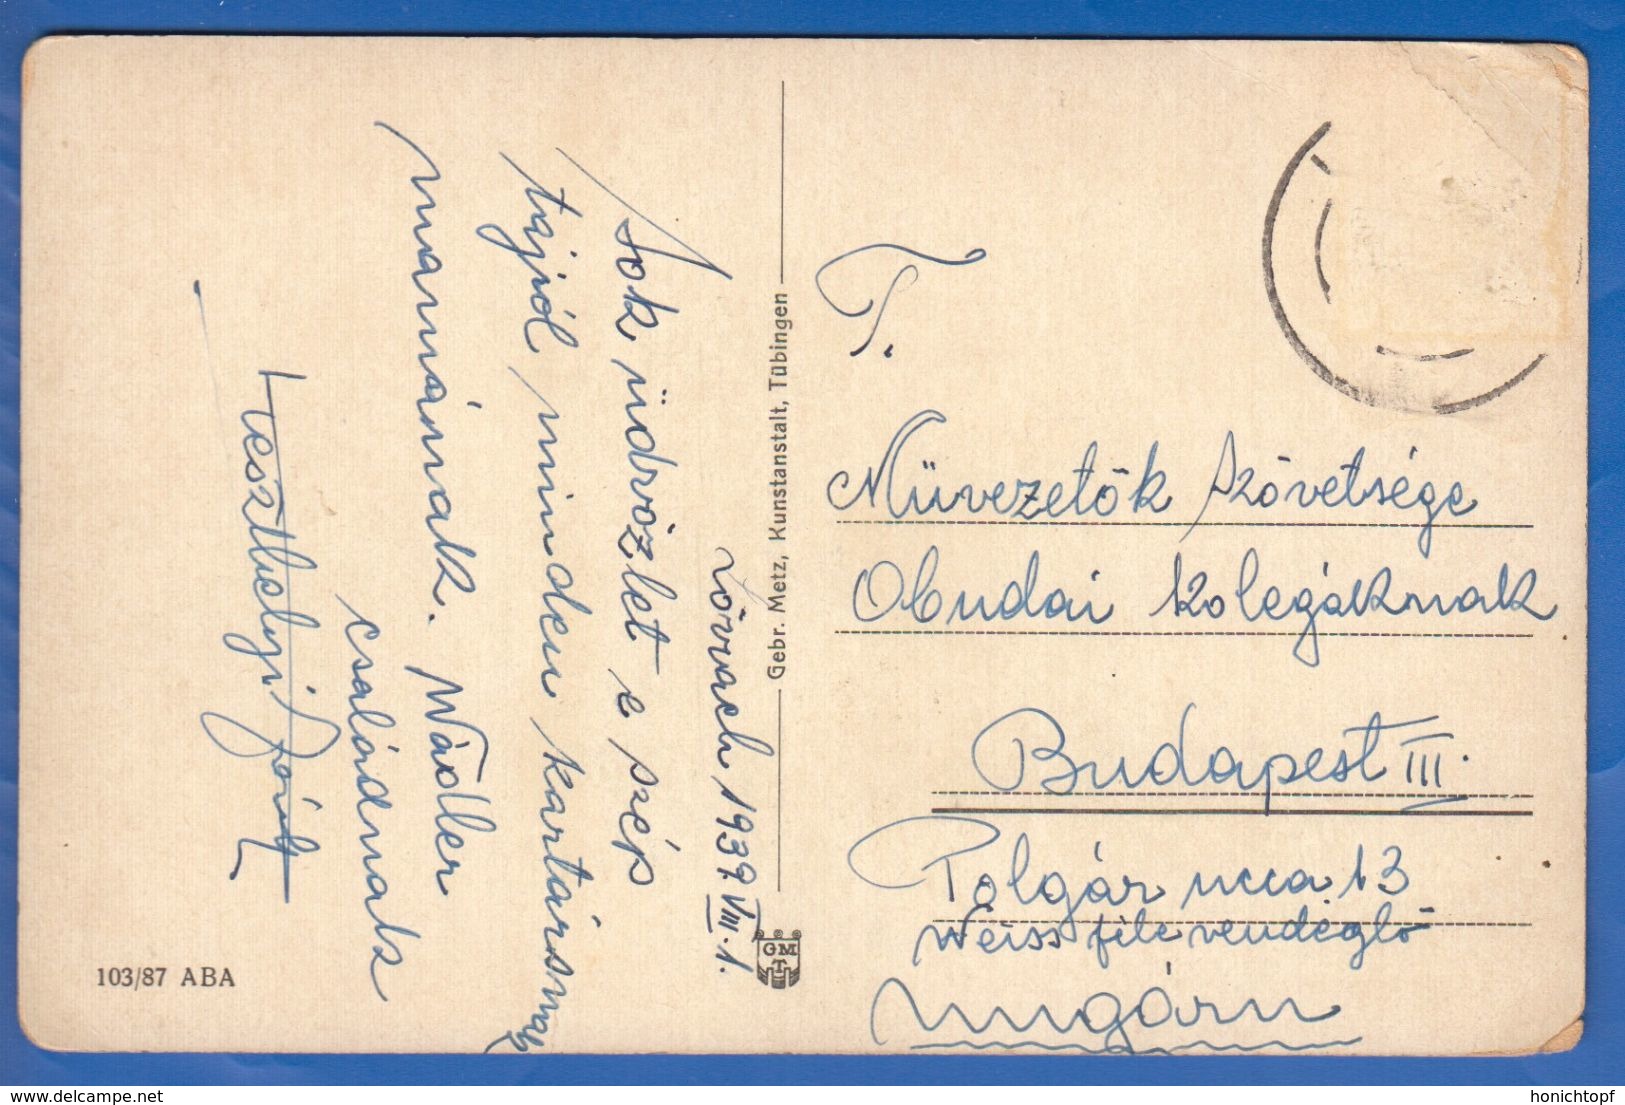 Lörrach 1939 VIII. 1.
Sok üdvözlet e szép
tájról minden kartársnak
mamámnak. Nádler
családnak
Keszthelyi
Gebr. Metz, Kunstanstalt, Tübingen
GMT
103/87 ABA
T.
Müvezetők szövetsége
Obudai kolegáknak
Budapest III.
Polgár ucca 13
Weiss féle vendéglő
Ungárn
delcampe.net
honichtopf